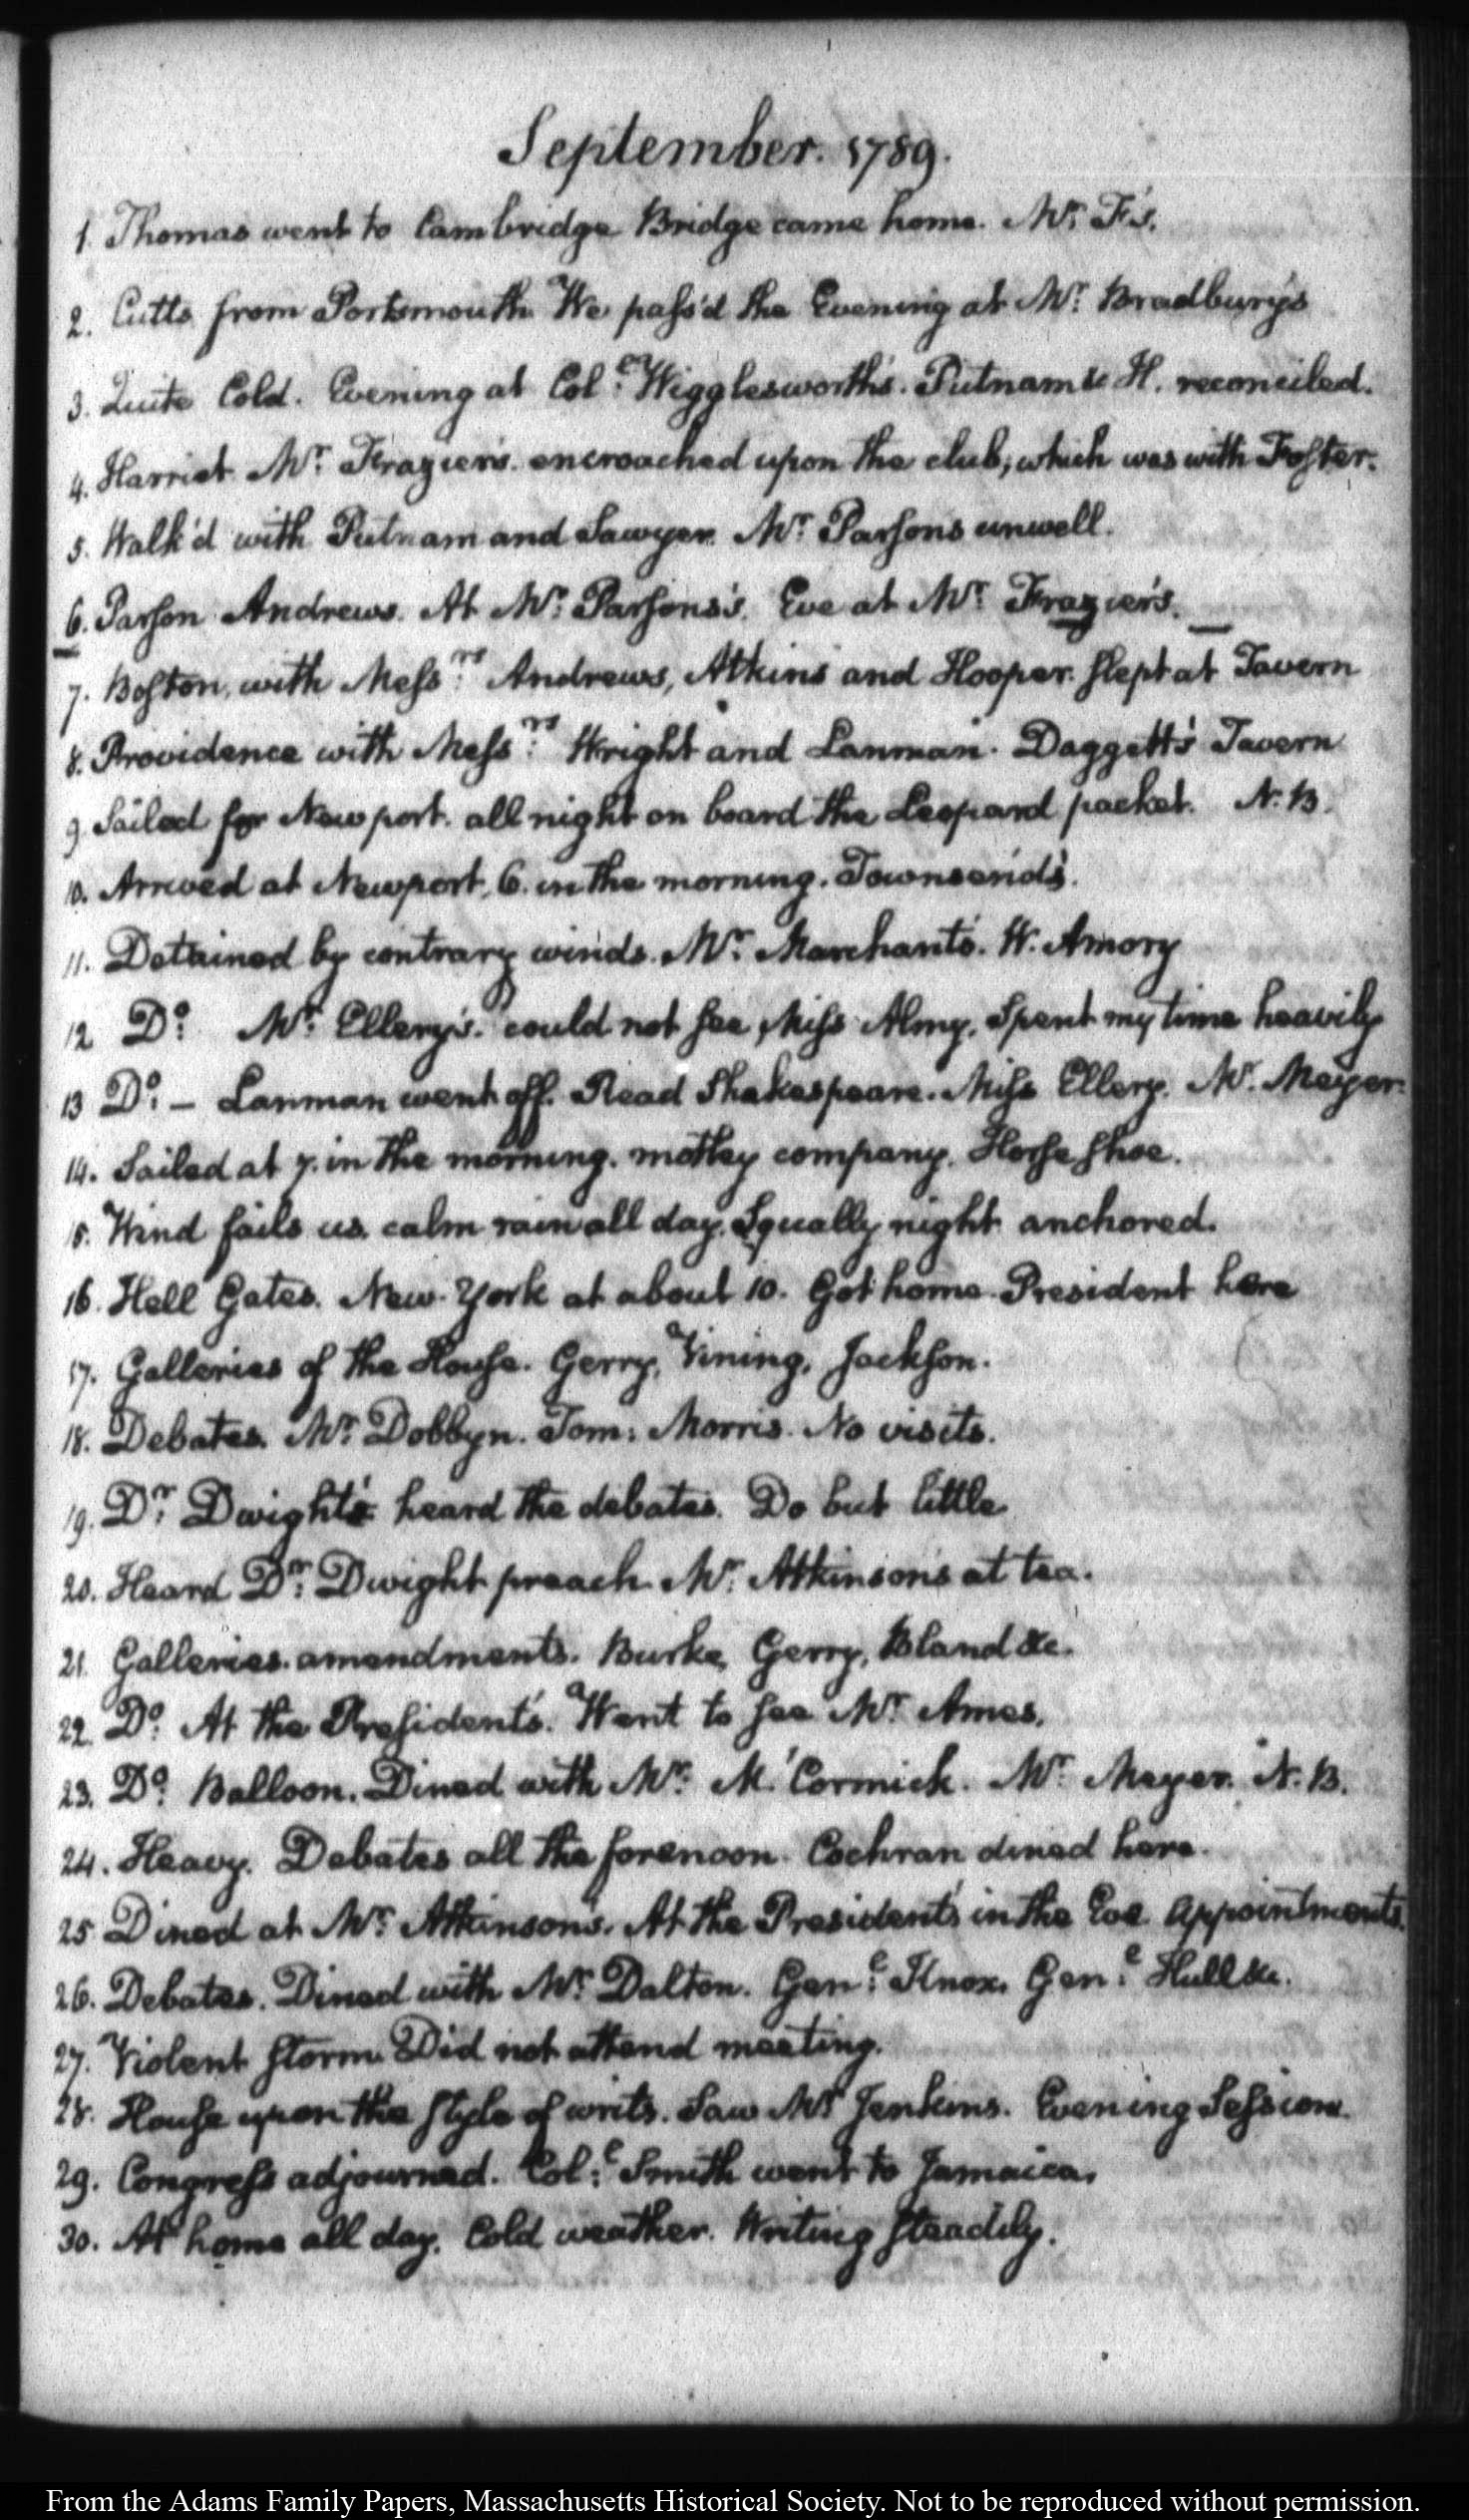 September. 1789.
1. Thomas went to Cambridge Bridge came home. Mr. F's.
2. Cutts from Portsmouth We pass'd the Evening at Mr. Bradbury's
3. Quite Cold. Evening at Col.l Wigglesworth's. Putnam & H. reconciled.
4. Harriet Mr. Frazier's. encroached upon the club; which was with Foster.
5. Walk'd with Putnam and Sawyer. Mr. Parsons unwell.
6. Parson Andrews. At Mr. Parsons's. Eve at Mr. Frazier's.
7. Boston, with Mess.rs Andrews, Atkins and Hooper. slept at Tavern
8. Providence with Mess.rs Wright and Lanman. Daggett's Tavern
9. Sailed for Newport. all night on board the Leopard packet. N.B.
10. Arrived at Newport, 6. in the morning. Townsend's.
11. Detained by contrary winds. Mr. Marchant's. W. Amory
12 Do. Mr. Ellery's. could not see Miss Almy. Spent my time heavily
13 Do. – Lanman went off. Read Shakespeare. Miss Ellery. Mr. Meyer.
14. Sailed at 7. in the morning. motley company. Horse shoe.
15. Wind fails us. calm rain all day. Squally night anchored.
16. Hell Gates. New-York at about 10. Got home. President here
17. Galleries of the House. Gerry, Vining, Jackson.
18. Debates. Mr. Dobbyn. Tom: Morris. No visits.
19. Dr. Dwight's heard the debates. Do but little
20. Heard Dr. Dwight preach. Mr. Atkinson's at tea.
21. Galleries. amendments. Burke, Gerry, Bland &c.
22. Do. At the President's. Went to see Mr. Ames.
23. Do. Balloon. Dined with Mr. M'Cormick. Mr. Meyer. N.B.
24. Heavy. Debates all the forenoon. Cochran dined here.
25 Dined at Mr. Atkinson's. At the President's in the Eve. Appointments.
26. Debates. Dined with Mr. Dalton. Gen.l Knox, Gen.l Hull &c.
27. Violent storm. Did not attend meeting.
28. House upon the style of writs. Saw Mr Jenkins. Evening Session.
29. Congress adjourned. Col.l Smith went to Jamaica.
30. At home all day. Cold weather. Writing steadily.
From the Adams Family Papers, Massachusetts Historical Society. Not to be reproduced without permission.